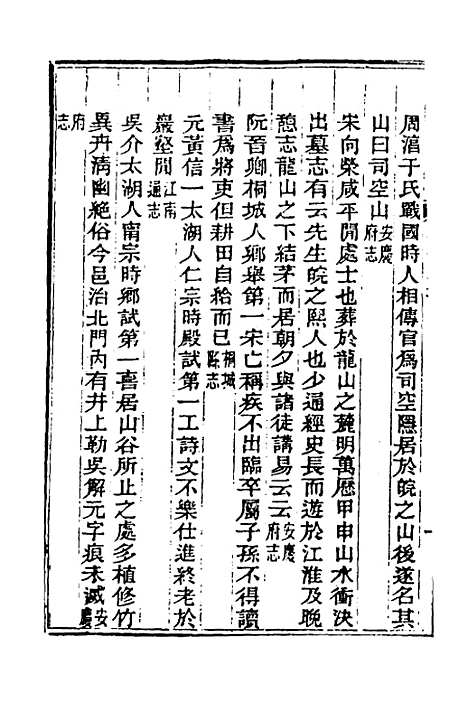 周淐于氏戰國時人相傳官爲司空隱居於皖之山後遂名其
山曰司空山安慶府志
宋向榮咸平閒處士也葬於龍山之麓明萬厯甲申山水衝決
出墓志有云先生皖之熙人也少通經史長而遊於江淮及晚
憩志龍山之下結茅而居朝夕與諸徒講易云云安慶府志
阮晉卿桐城人鄉舉第一宋亡稱疾不出臨卒屬子孫不得讀
書爲將吏但耕田自給而已桐城縣志
元黃信一太湖人仁宗時殿試第一工詩文不樂仕進終老於
巖壑閒江南通志
吳介太湖人南宗時鄉試第一喜居山谷所止之處多植修竹
異卉淸幽絶俗今邑治北門內有井上勒吳解元字痕未滅安慶
府志